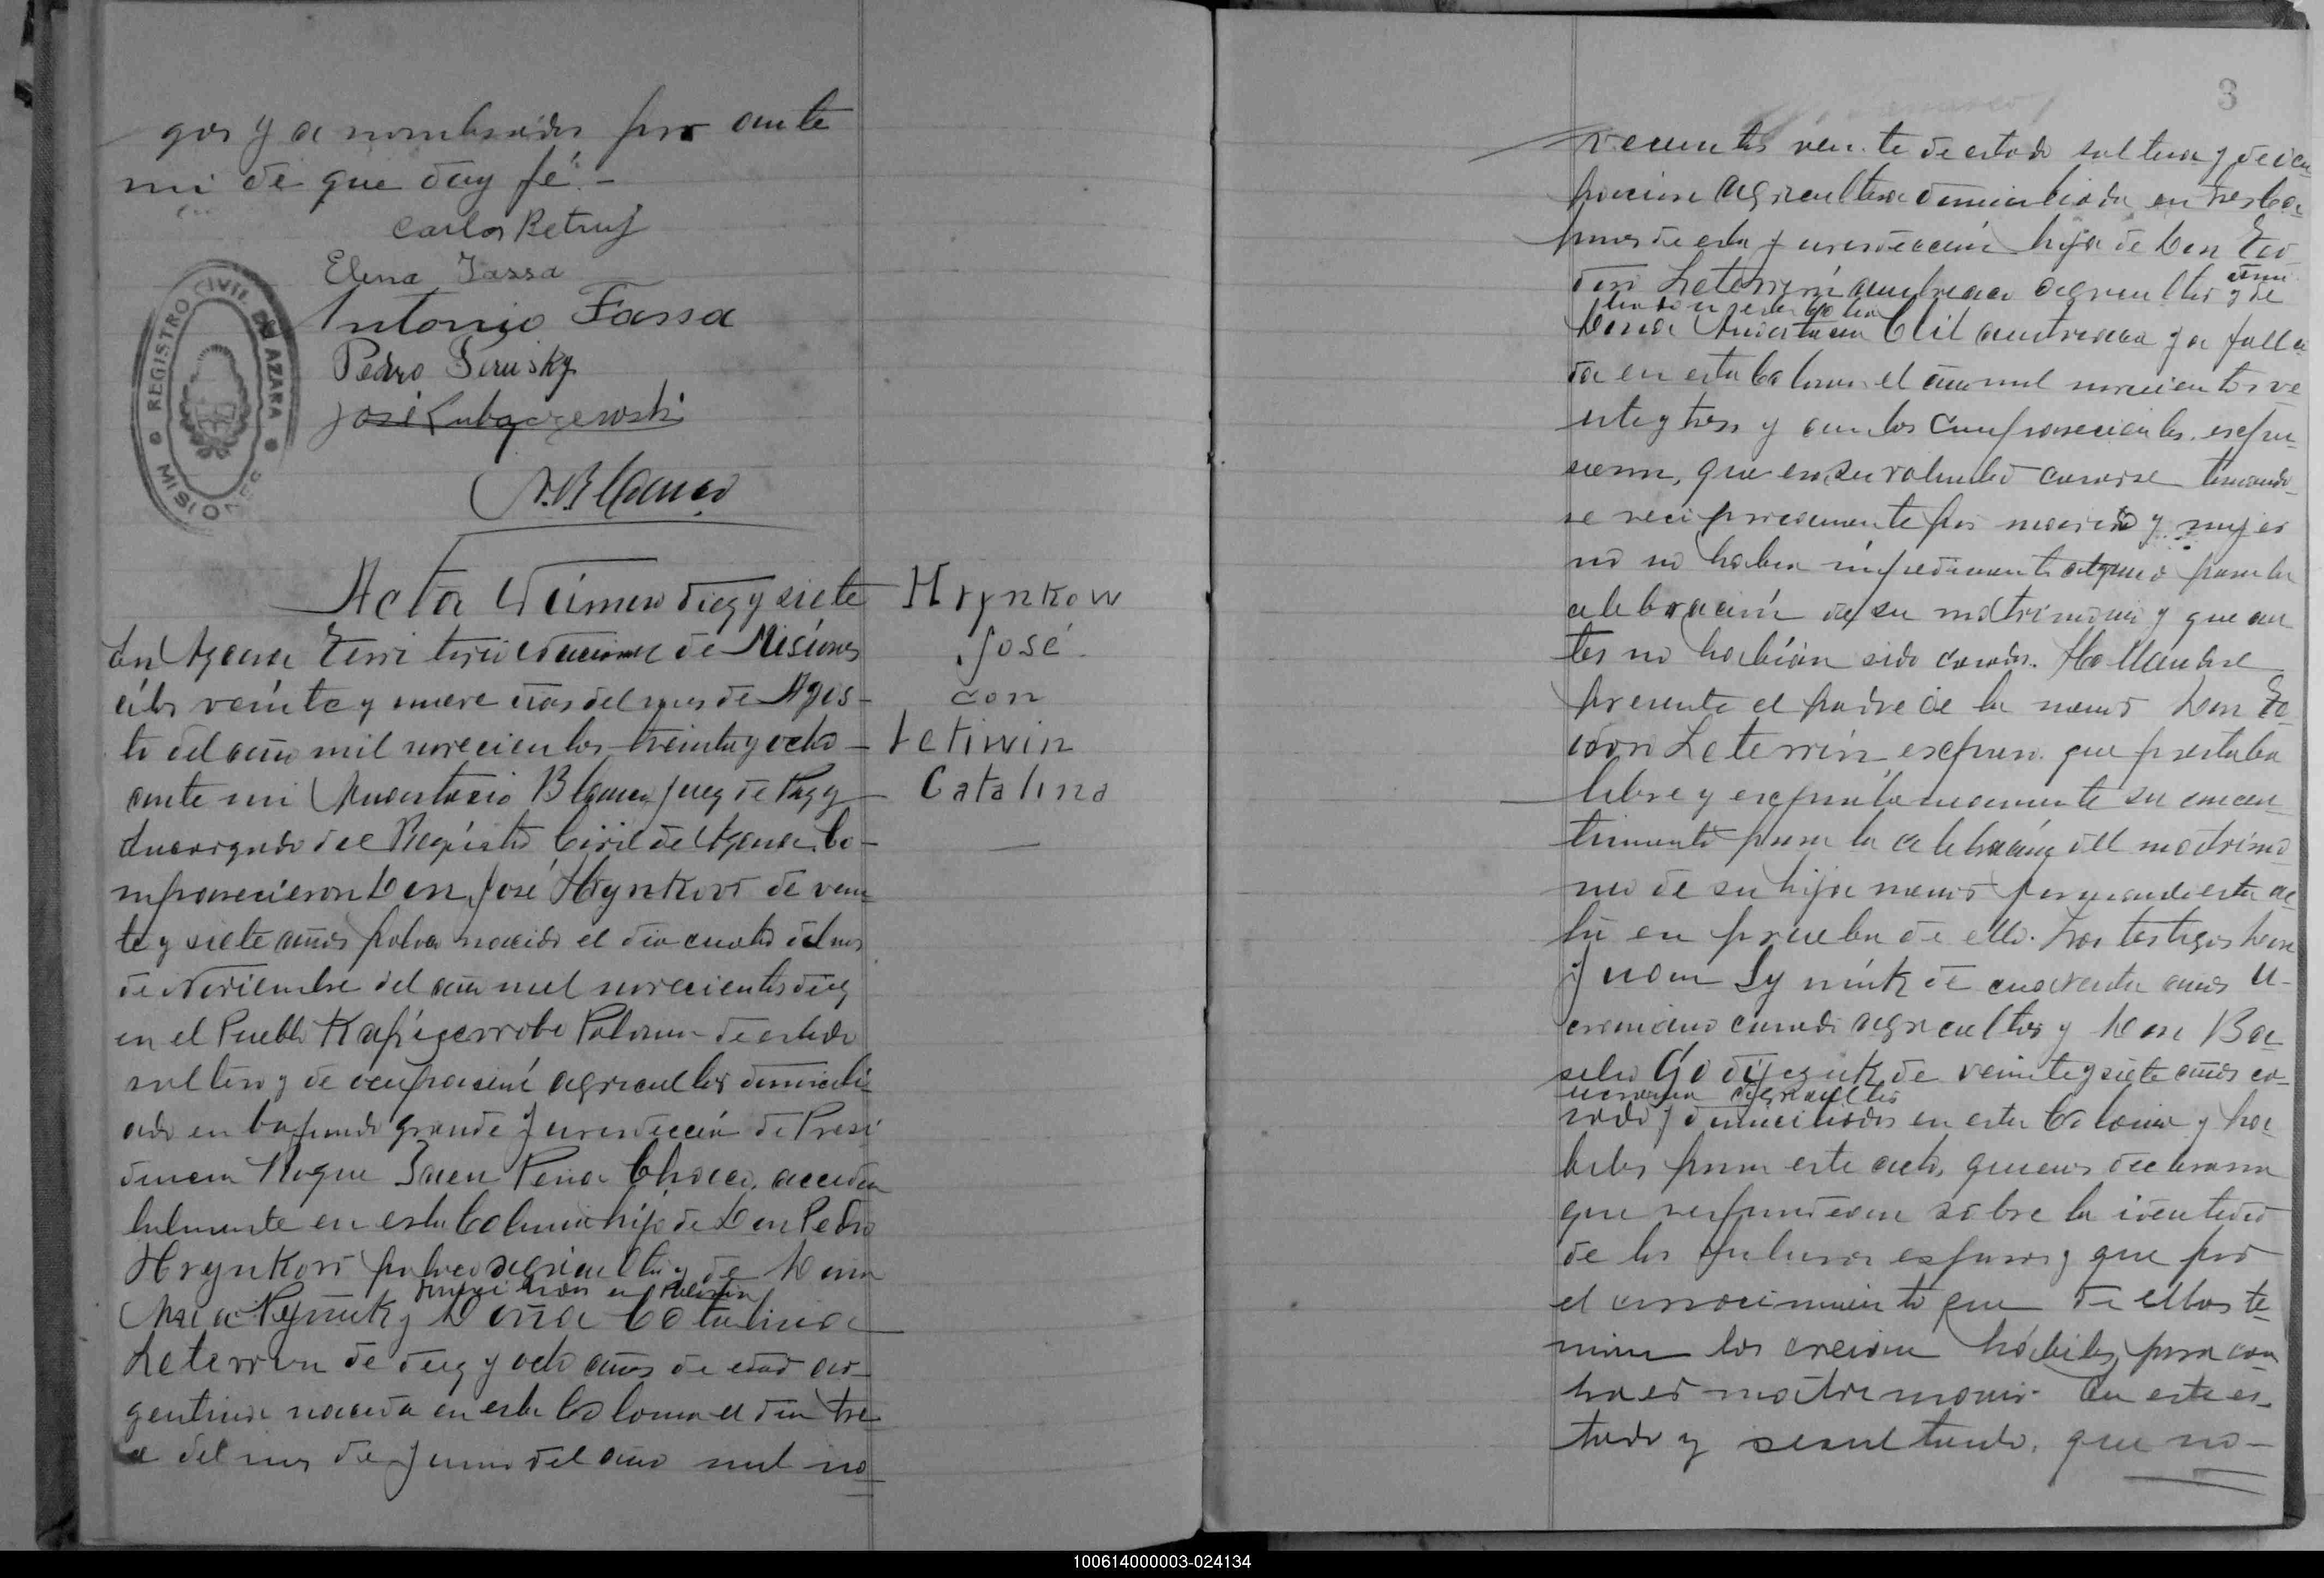 gos ya nombrados por ante
mi de que doy fé.-
Carlos Petruf
Elena Fassa
Antonio Fassa
Pedro
José
REGISTRO CIVIL DE AZARA
MISIONES
Acta Número diez y siete
En Azara Territorio Nacional de Misiones
á los veinte y nueve dias del mes de Agos-
to del año mil novecientos treinta y ocho
ante mi Anastacio Blanco Juez de Paz y
Encargado del Registro Civil de Azara, Co-
mparecieron Don José Hrynkow de vein-
te y siete años polaco nacido el dia cuatro del mes
de Noviembre del año mil novecientos diez
en el Pueblo Polonia de estado
soltero y de ocupación agricultor domicili-
ado en grande Jurisdicción de Presi
dencia Roque Saen Peña Chaco, acciden
talmente en esta Colonia hijo de Don Pedro
Hrynkow polaco agricultor y de Dona
domiciliados en Polonia
y Doña Catalina
Leterwin de diez y ocho años de edad ar-
gentina nacida en esta Colonia el dia tre-
ce del mes de Junio del año mil no-
Hrynkow
José
con
Letiwin
Catalina
3
vecientos veinte de estado soltera y de ocu-
pacion agricultora domiciliada en tres Ca-
pones de esta Jurisdicción hija de Don Teo
doro Leterwin austriaco agricultor y de
domi
ciliado en esta Colonia
Dona Anastacia austriaca ya falleci
da en esta Colonia el año mil novecientos ve
inte y tres y ambos Comparecientes expu-
sieron, que era su voluntad casarse tomando-
se reciprocamente por marido y mujer
no haber impedimento alguno para la
celebración de su matrimonio y que an
tes no habían sido casados. Hallandose
presente el padre de la menor Don Te-
odoro Leterwin expuso que prestaba
libre y expontaneamente su consen-
timiento para la celebración del matrimo
nio de su hija menor firmando esta ac-
ta en prueba de ello. Los testigos Don
Juan de cuarenta años U-
craniano casado agricultor y Don Ba-
silio de veinte y siete años ca-
ucraniano agricultor
sado, domiciliados en esta Colonia y ha-
biles para este acto, quienes declararon
que respondian sobre la identidad
de los futuros esposos y que por
el conocimiento que de ellos te-
nian los creian hábiles para con
traer matrimonio. En este es-
tado y resultando, que no-
100614000003-024134